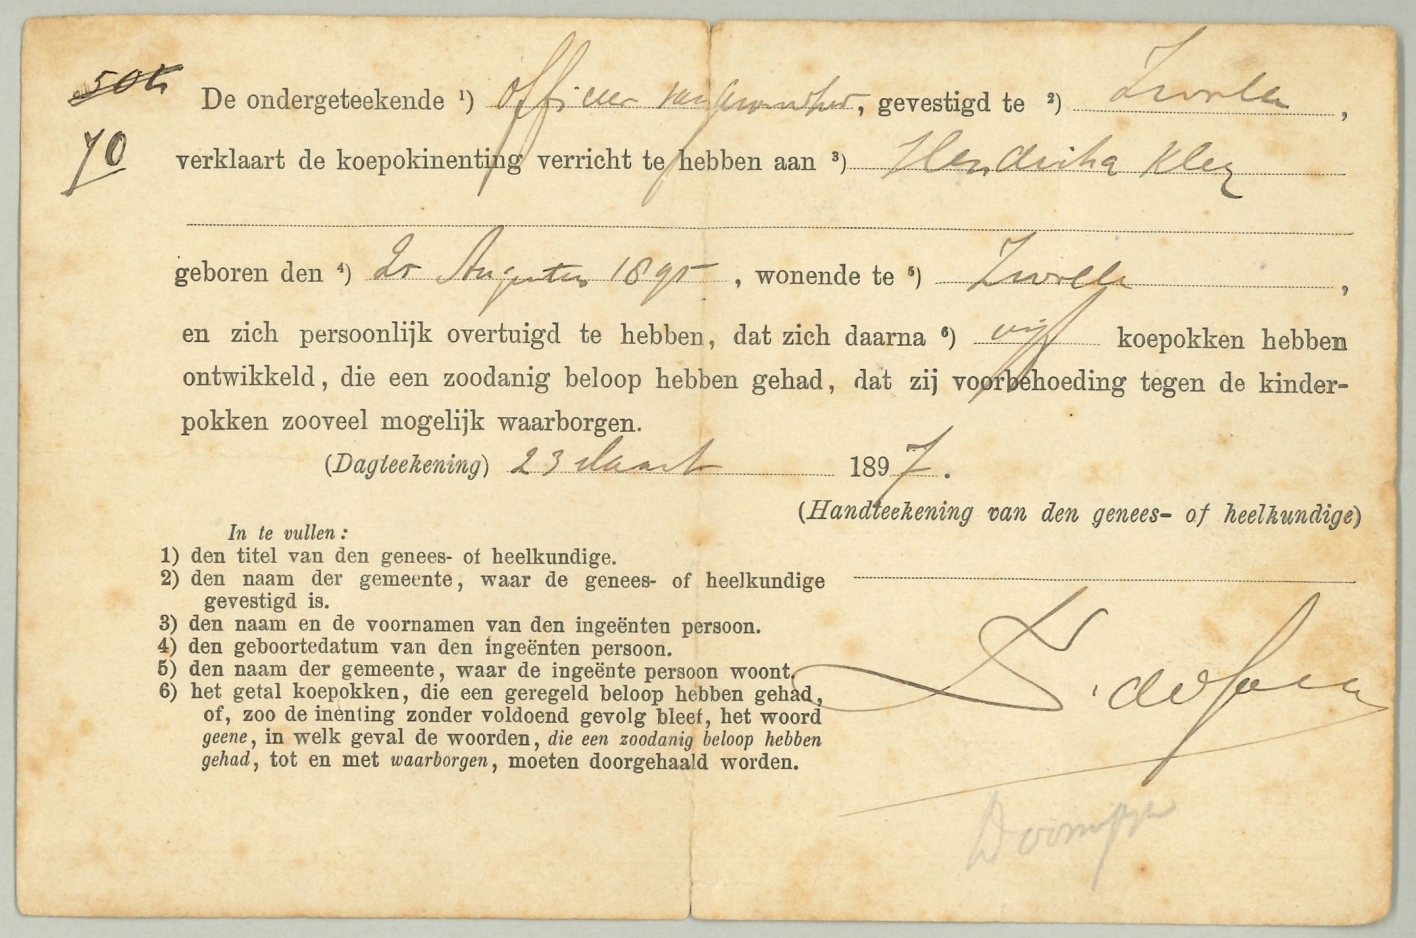 50
70
De ondergeteekende ¹) officier van gezondheid, gevestigd te ²) Zwolle,
verklaart de koepokinenting verricht te hebben aan ³) Hendrika Kley
geboren den ⁴) 25 Augustus 1895, wonende te ⁵) Zwolle,
en zich persoonlijk overtuigd te hebben, dat zich daarna ⁶) vijf koepokken hebben
ontwikkeld, die een zoodanig beloop hebben gehad, dat zij voorbehoeding tegen de kinder-
pokken zooveel mogelijk waarborgen.
(Dagteekening) 23 Maart 1897.
(Handteekening van den genees- of heelkundige)
In te vullen:
1) den titel van den genees- of heelkundige.
2) den naam der gemeente, waar de genees- of heelkundige
gevestigd is.
3) den naam en de voornamen van den ingeënten persoon.
4) den geboortedatum van den ingeënten persoon.
5) den naam der gemeente, waar de ingeënte persoon woont.
6) het getal koepokken, die een geregeld beloop hebben gehad,
of, zoo de inenting zonder voldoend gevolg bleef, het woord
geene, in welk geval de woorden, die een zoodanig beloop hebben
gehad, tot en met waarborgen, moeten doorgehaald worden.